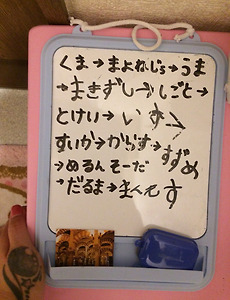 くま→まよねじろ→うま
→まきずし→しごと→
とけい→いす
すいか→からす→すずめ
→めるんそーだ
→だるま→